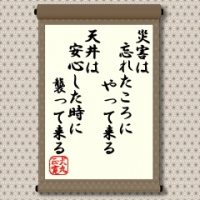 災害は
忘れたころに
やって来る
天井は
安心した時に
襲って来る